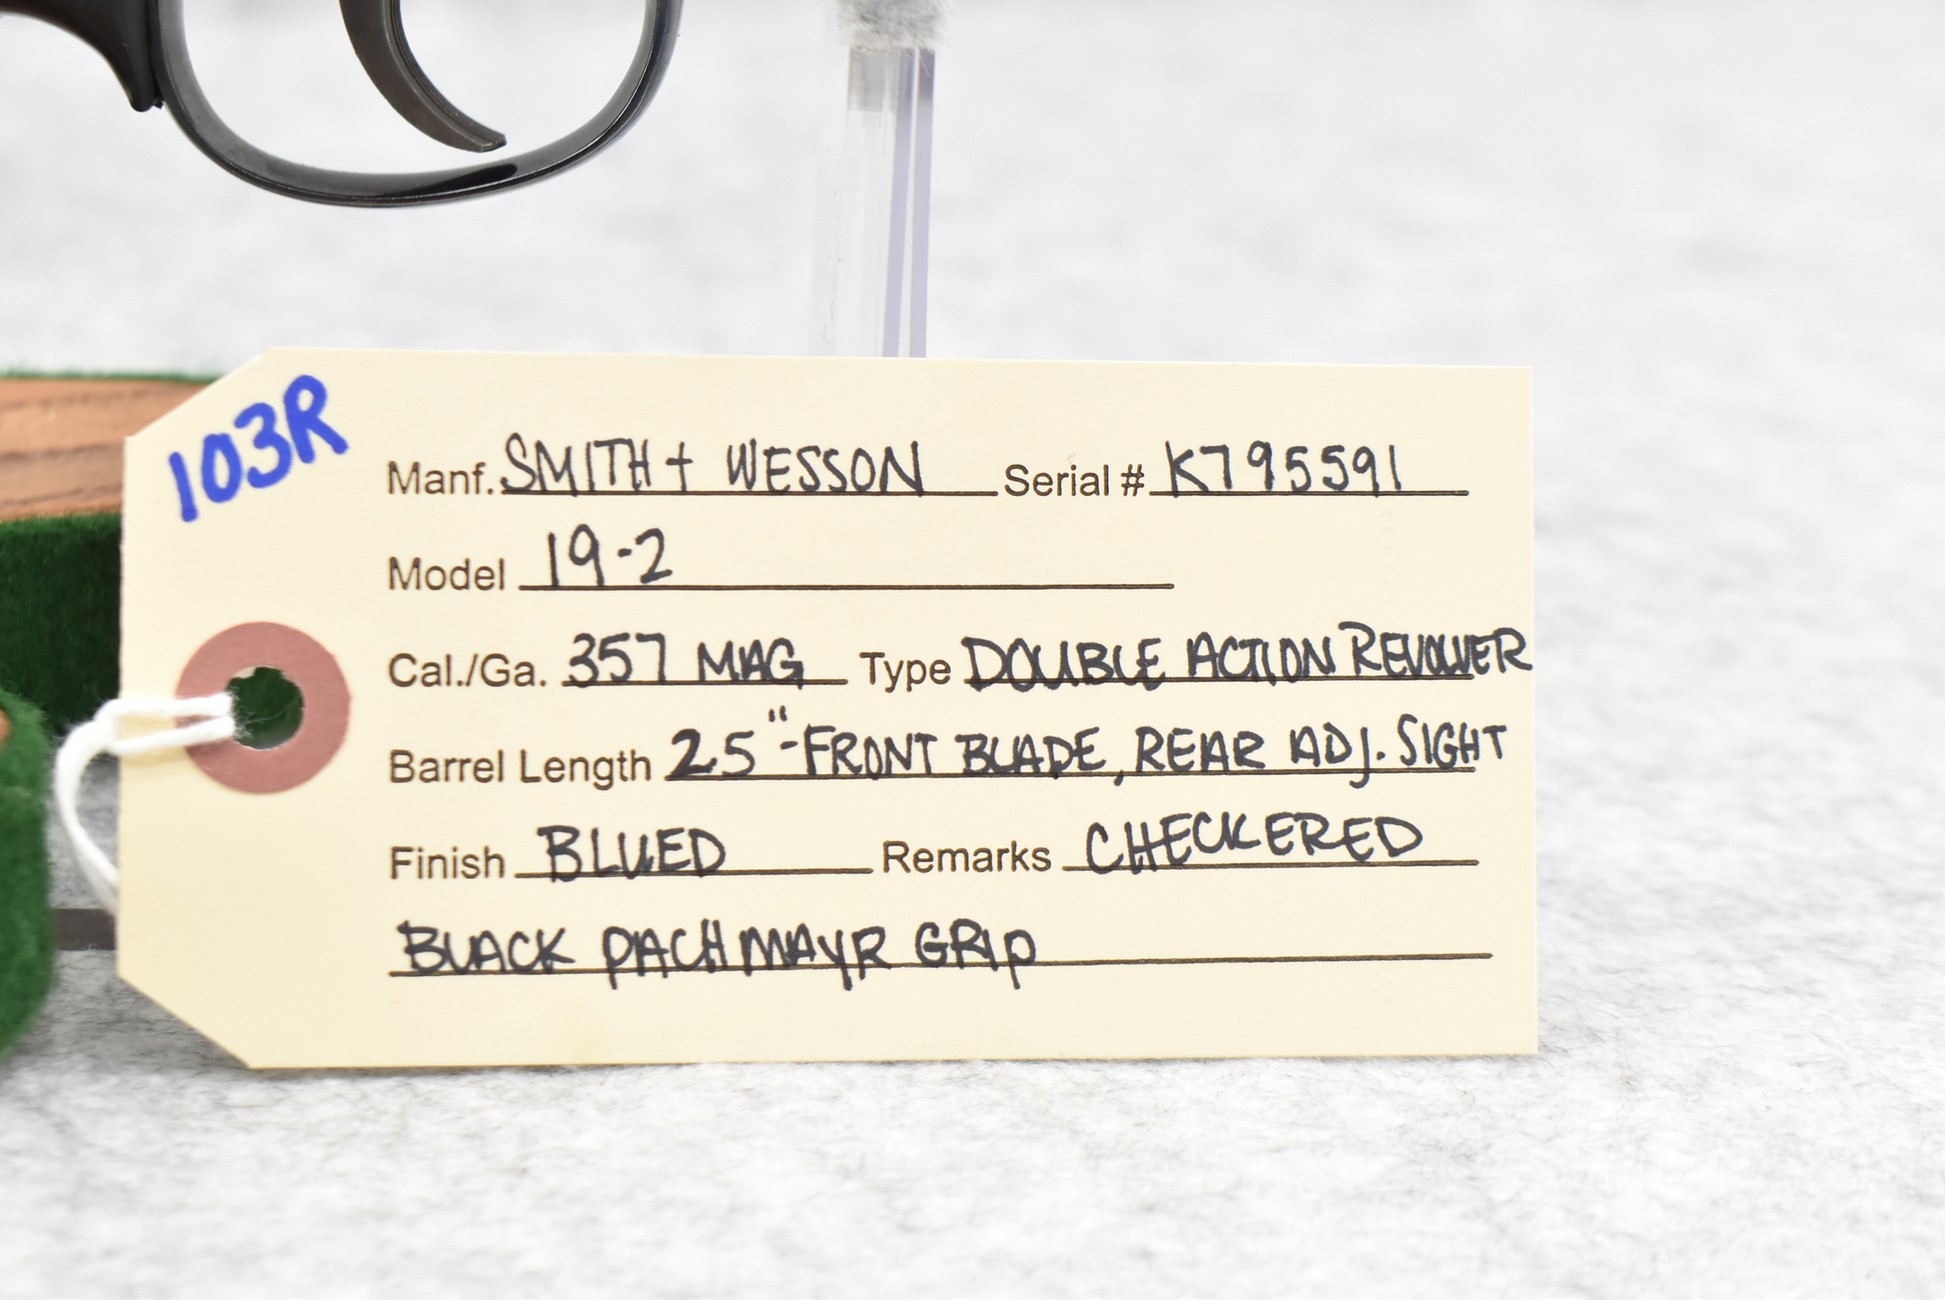 103R
Manf. SMITH + WESSON Serial # K795591
Model 19-2
Cal./Ga. 357 MAG Type DOUBLE ACTION REVOLVER
Barrel Length 2.5"-FRONT BLADE, REAR ADJ. SIGHT
Finish BLUED Remarks CHECKERED
BLACK PACHMAYR GRIP